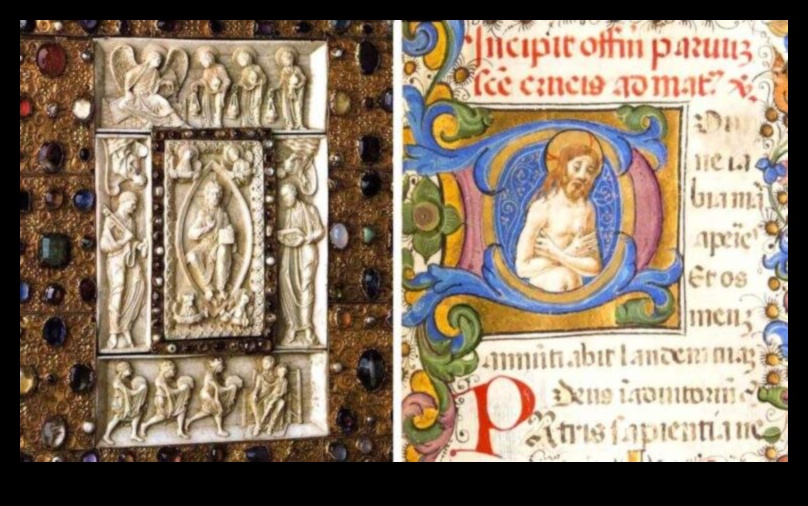 Incipit offm paruuz
sce crucis ad mat. x.
D
ne la
bia ma
aperi
Et os
meuz
annutiabit laudem tuaz
Deus i adiutorm
Patris sapientia ue